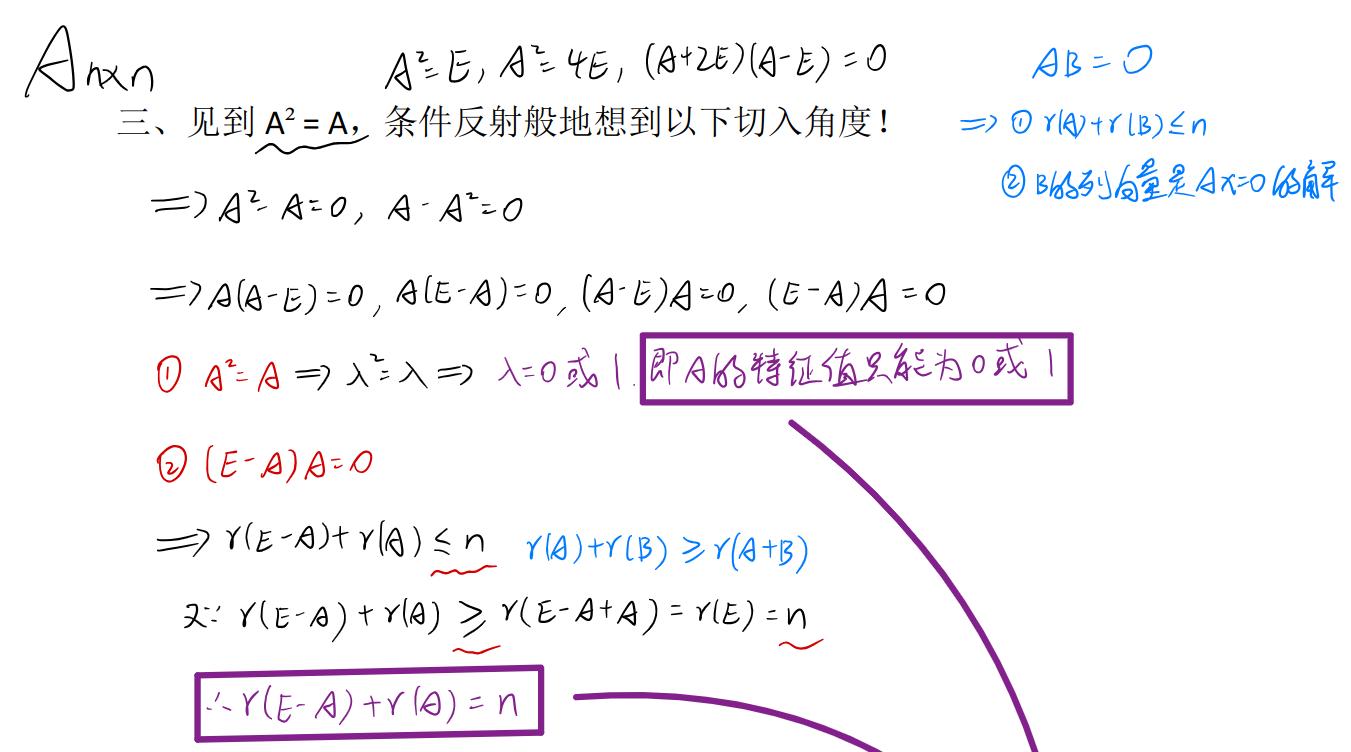 Aₙₓₙ
A²=E, A²=4E, (A+2E)(A-E)=0
AB=0
三、见到 A² = A，条件反射般地想到以下切入角度！
=> ① r(A)+r(B)≤n
② B的列向量是Ax=0的解
=> A²-A=0, A-A²=0
=> A(A-E)=0, A(E-A)=0, (A-E)A=0, (E-A)A=0
① A²=A => λ²=λ => λ=0或1. 即A的特征值只能为0或1
② (E-A)A=0
=> r(E-A)+r(A)≤n r(A)+r(B)≥r(A+B)
又∵ r(E-A)+r(A)≥r(E-A+A)=r(E)=n
∴ r(E-A)+r(A)=n